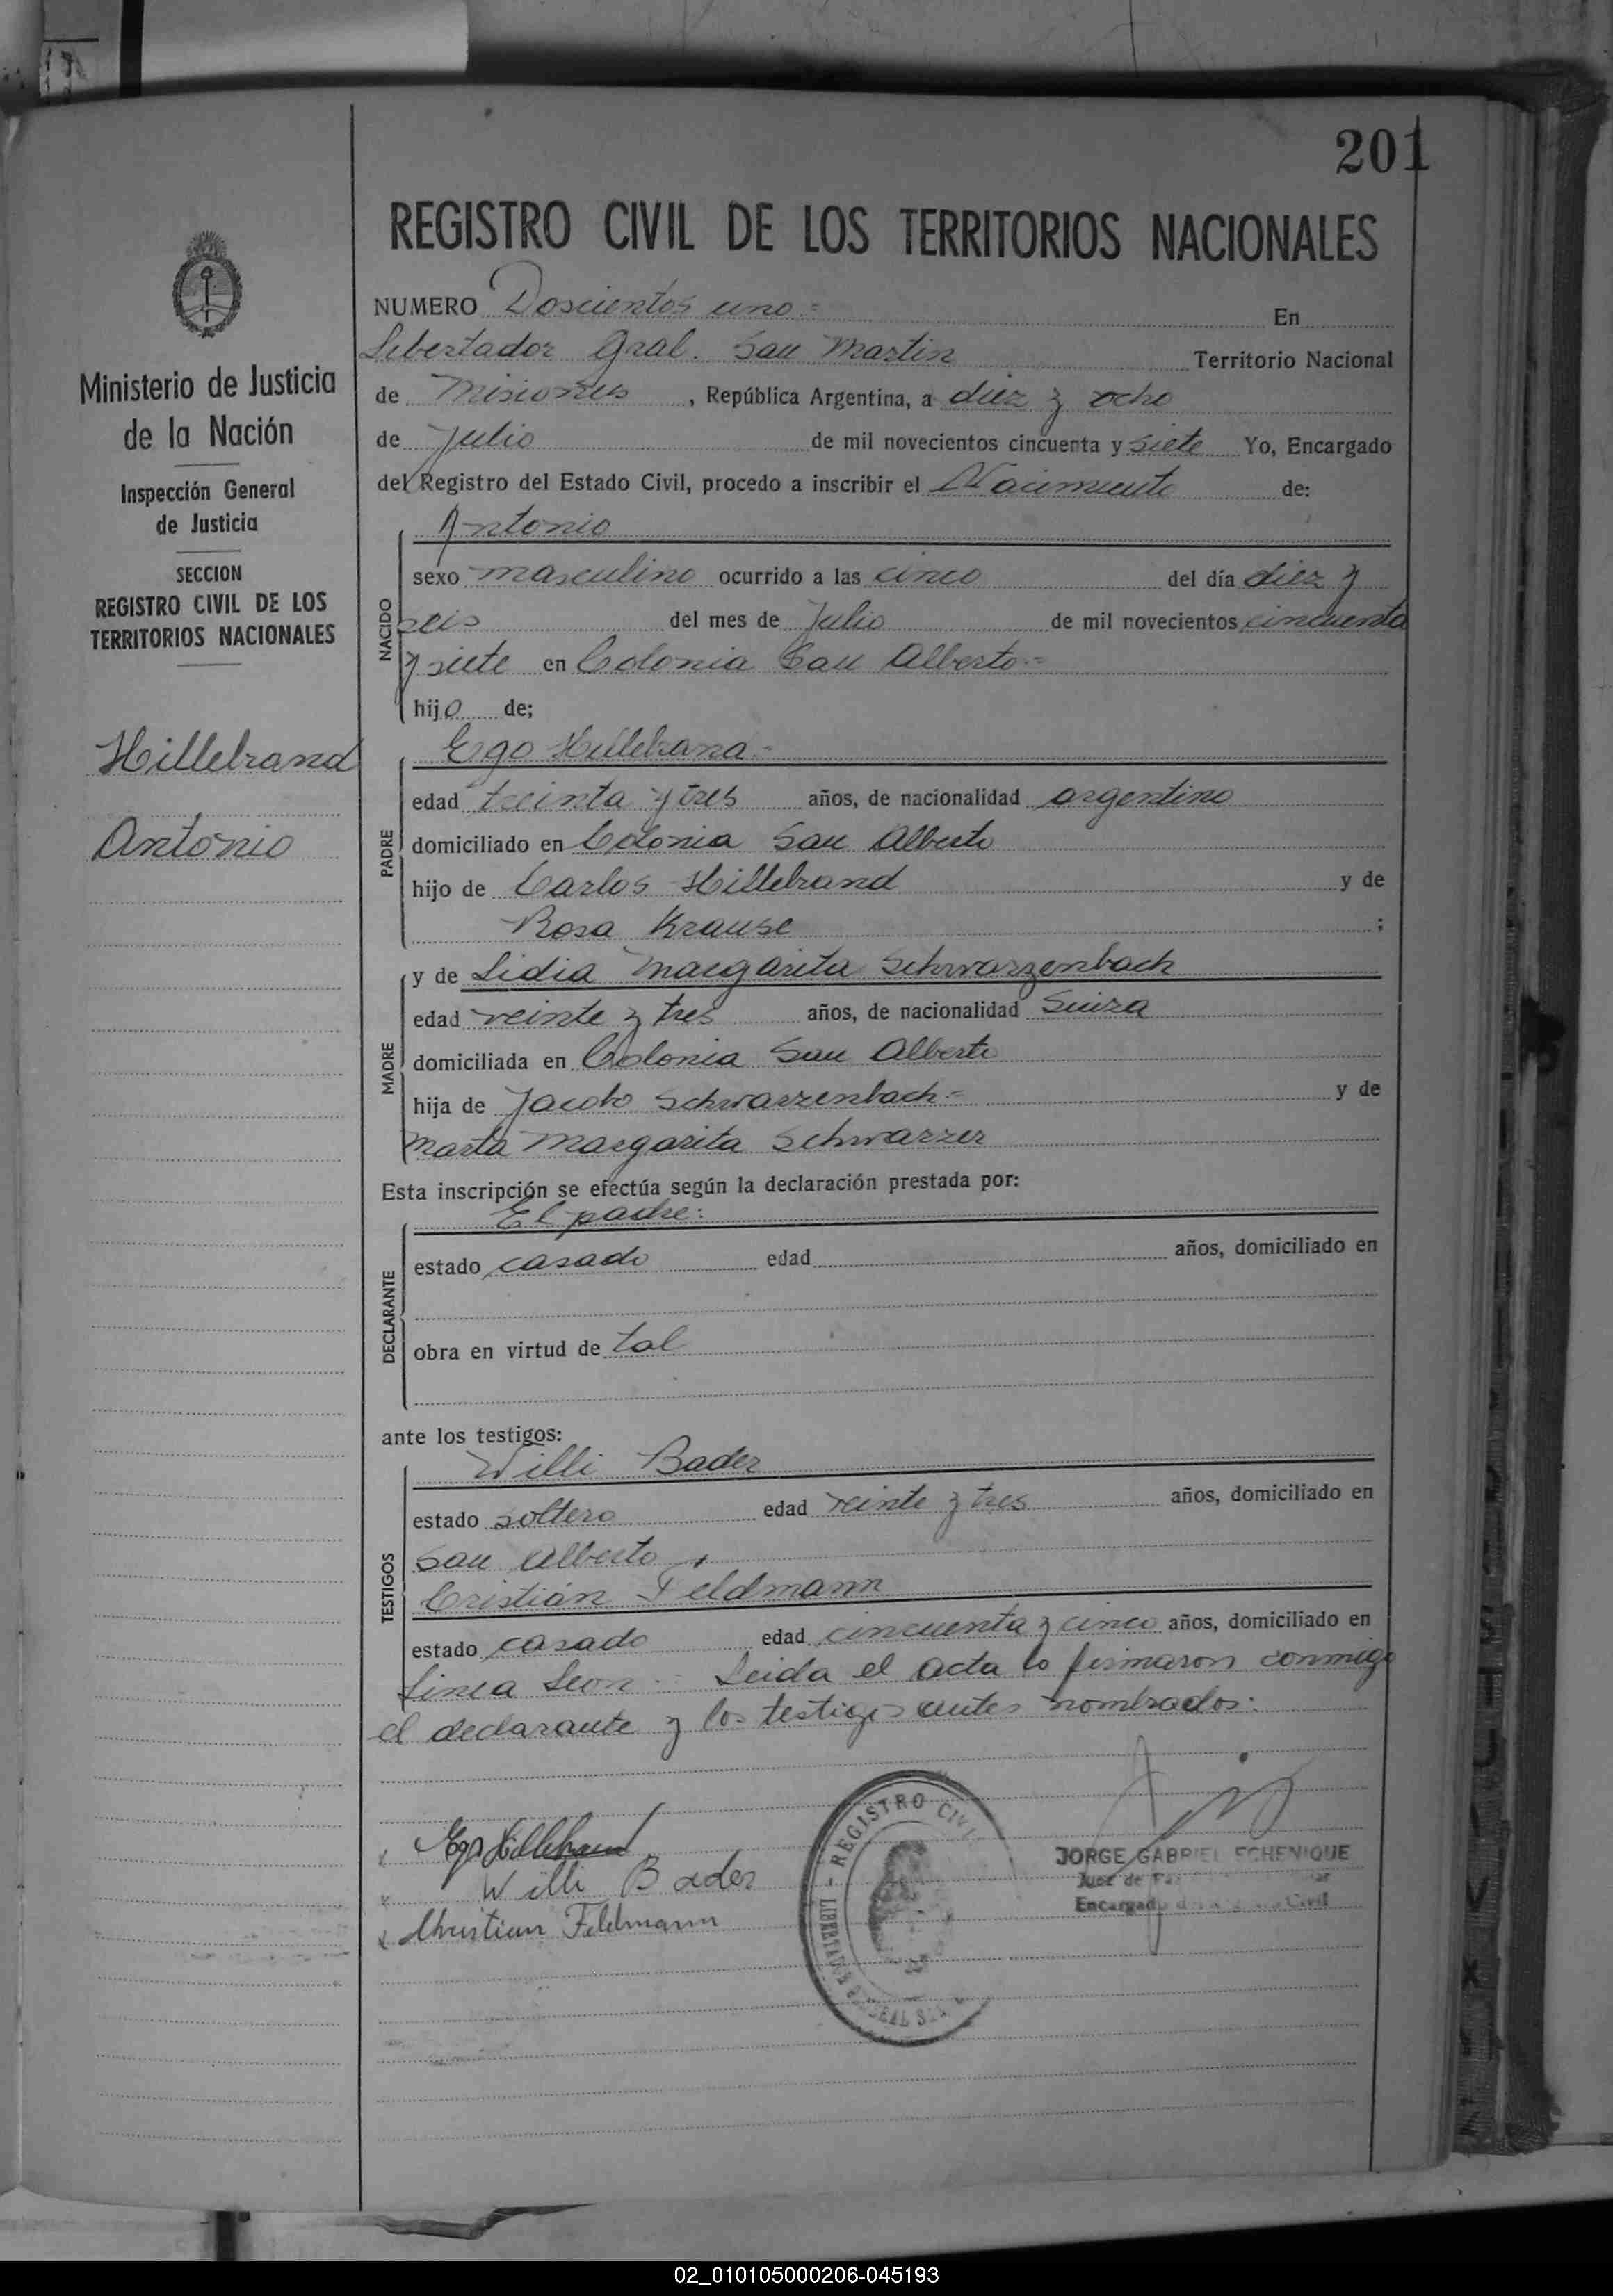 201
REGISTRO CIVIL DE LOS TERRITORIOS NACIONALES
Ministerio de Justicia
de la Nación
Inspección General
de Justicia
SECCION
REGISTRO CIVIL DE LOS
TERRITORIOS NACIONALES
Hillebrand
Antonio
NUMERO Doscientos uno.= En
Libertador Gral. San Martin Territorio Nacional
de Misiones, República Argentina, a diez y ocho
de Julio de mil novecientos cincuenta y siete Yo, Encargado
del Registro del Estado Civil, procedo a inscribir el Nacimiento de:
NACIDO
Antonio
sexo masculino ocurrido a las cinco del día diez y
seis del mes de Julio de mil novecientos cincuenta
y siete en Colonia San Alberto.=
hijo de;
PADRE
Ego Hillebrand.=
edad treinta y tres años, de nacionalidad argentino
domiciliado en Colonia San Alberto
hijo de Carlos Hillebrand y de
Rosa Krause ;
MADRE
y de Lidia Margarita Schwarzenbach
edad veinte y tres años, de nacionalidad Suiza
domiciliada en Colonia San Alberto
hija de Jacobo Schwarzenbach= y de
Marta Margarita Schwarzer
Esta inscripción se efectúa según la declaración prestada por:
DECLARANTE
El padre:
estado casado edad años, domiciliado en
obra en virtud de tal
ante los testigos:
TESTIGOS
Willi Bader
estado soltero edad veinte y tres años, domiciliado en
San Alberto
Cristián Feldmann
estado casado edad cincuenta y cinco años, domiciliado en
Linea Leon. Leida el acta lo firmaron conmigo
el declarante y los testigos antes nombrados:
Ego Hillebrand
Willi Bader
Christian Feldmann
REGISTRO CIVIL
JORGE GABRIEL ECHENIQUE
Juez de Paz
Encargado Civil
02_010105000206-045193